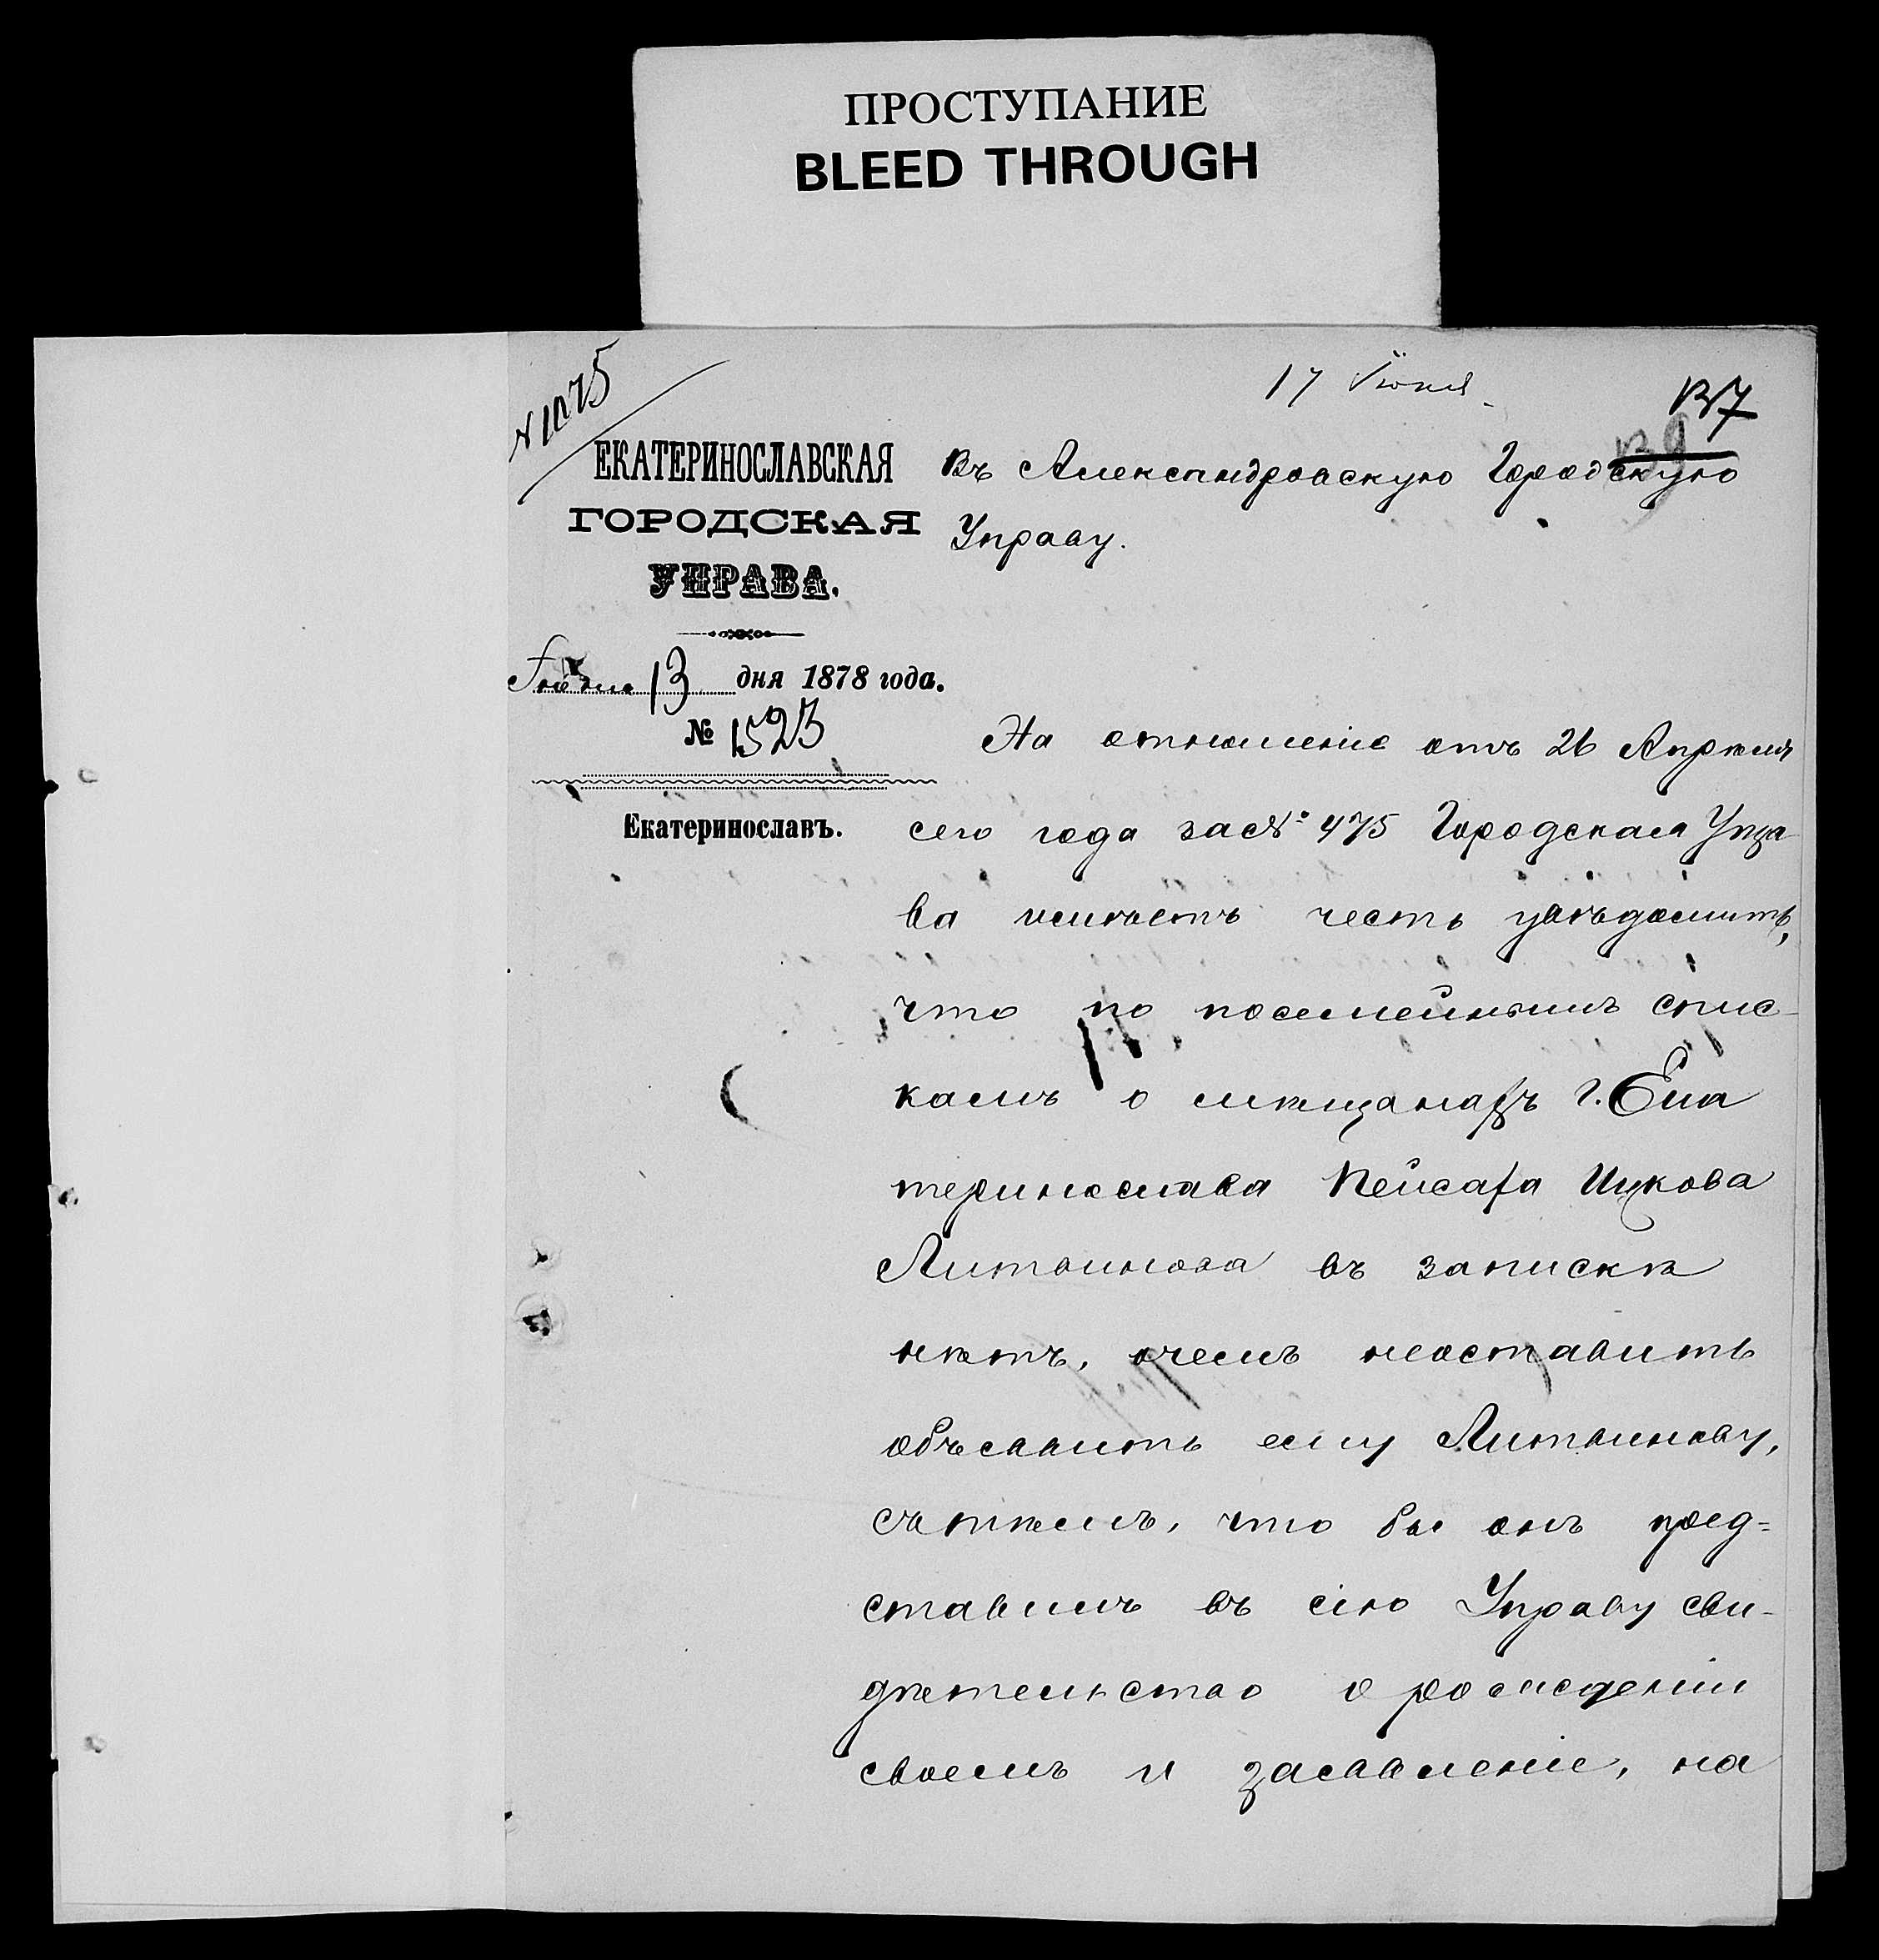 ПРОСТУПАНИЕ
BLEED THROUGH
№ 1075
17 Іюня
137
139
ЕКАТЕРИНОСЛАВСКАЯ
ГОРОДСКАЯ
УПРАВА.
Іюня 13 дня 1878 года.
№ 1523
Екатеринославъ.
Въ Александровскую Городскую
Управу.
На отношеніе отъ 26 Апрѣля
сего года за № 475 Городская Упра-
ва имѣетъ честь увѣдомить,
что по посемейнымъ спис-
камъ о мѣщанахъ г. Ека
теринослава Пейсаха Ицкова
Литвинова въ запискѣ
нѣтъ, очемъ неоставить
объявить ему Литвинову,
сътѣмъ, что бы онъ пред=
ставилъ въ сію Управу сви-
дѣтельство о рожденіи
своемъ и заявленіе, на